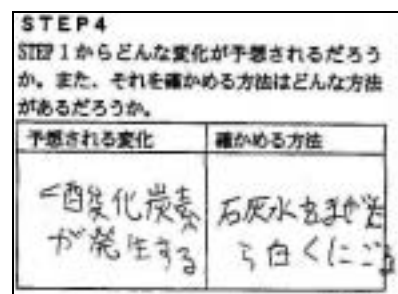 STEP4
STEP1からどんな変化が予想されるだろう
か。また、それを確かめる方法はどんな方法
があるだろうか。
予想される変化
確かめる方法
酸化炭素
が発生する
石灰水をまぜた
ら白くにごる